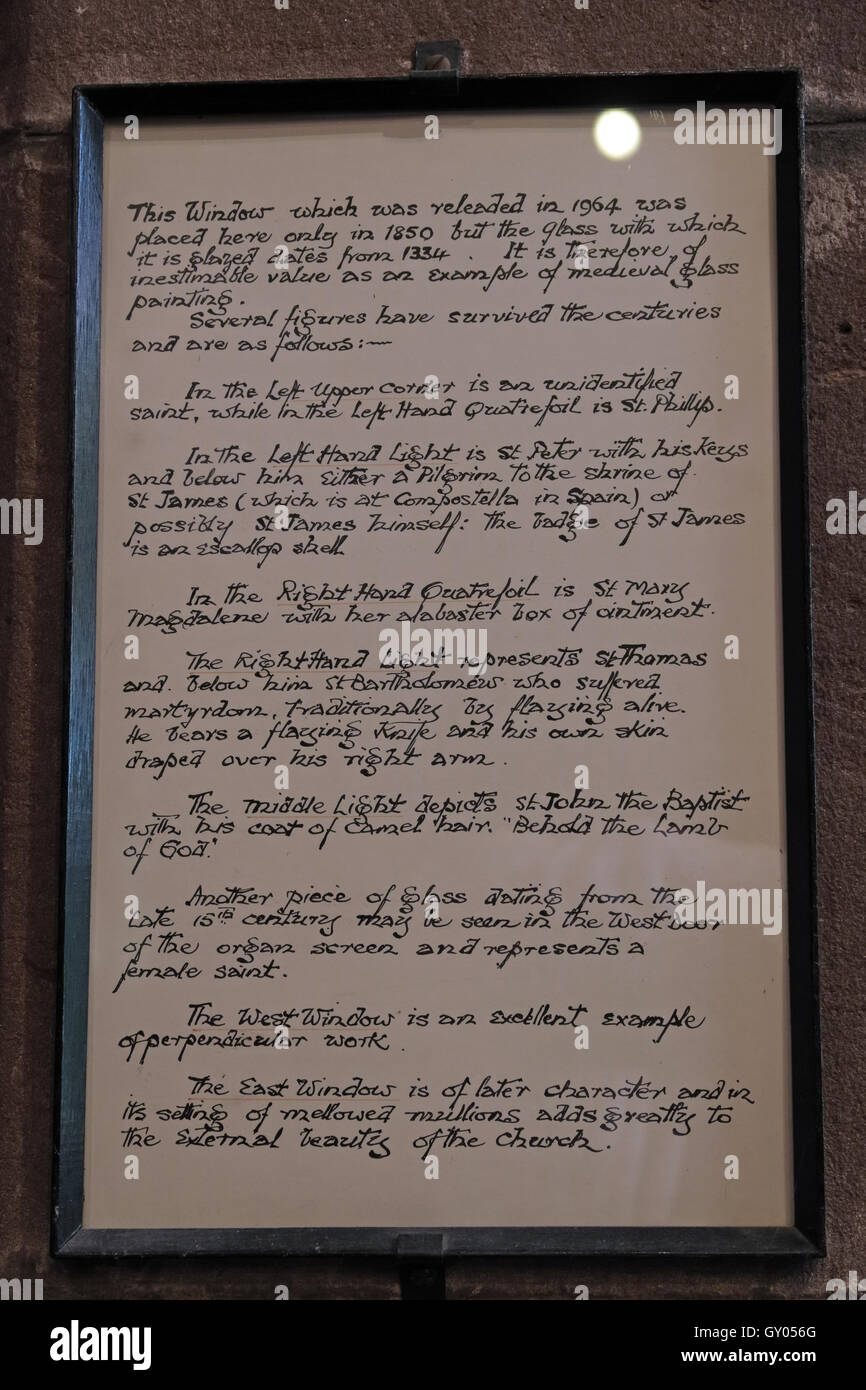 This Window which was releaded in 1964 was
placed here only in 1850 but the glass with which
it is glazed dates from 1334. It is therefore of
inestimable value as an example of medieval glass
painting.
Several figures have survived the centuries
and are as follows:—
In the Left Upper Corner is an unidentified
saint, while in the Left Hand Quatrefoil is St. Phillip.
In the Left Hand Light is St Peter with his Keys
and below him Either a Pilgrim to the shrine of
St James (which is at Compostella in Spain) or
possibly St James himself: the badge of St James
is an Escallop shell
In the Right Hand Quatrefoil is St Mary
Magdalene with her alabaster box of ointment.
The Right Hand Light represents St Thomas
and below him St Bartholomew who suffered
martyrdom, traditionally by flaying alive.
He bears a flaying Knife and his own skin
draped over his right arm.
The Middle Light depicts St John the Baptist
with his coat of Camel hair. "Behold the Lamb
of God."
Another piece of glass dating from the
late 15th century may be seen in the West Door
of the organ screen and represents a
female saint.
The West Window is an Excellent Example
of perpendicular work.
The East Window is of later character and in
its setting of mellowed mullions adds greatly to
the External beauty of the Church.
alamy
Image ID: GY056G
www.alamy.com